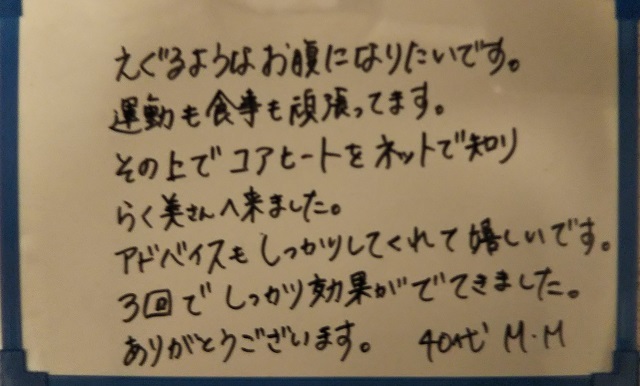 えぐるようなお腹になりたいです。
運動も食事も頑張ってます。
その上でコアヒートをネットで知り
らく美さんへ来ました。
アドベイスもしっかりしてくれて嬉しいです。
3回でしっかり効果がでてきました。
ありがとうございます。 40代 M・M